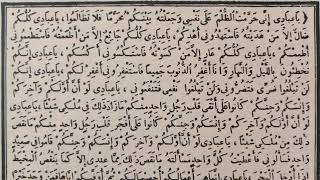 ﴿ يَاعِبَادِي إِنِّي حَرَّمْتُ الظُّلْمَ عَلَى نَفْسِي وَجَعَلْتُهُ بَيْنَكُمْ مُحَرَّمًا فَلَا تَظَالَمُوا، يَاعِبَادِي كُلُّكُمْ
ضَالٌّ إِلَّا مَنْ هَدَيْتُهُ فَاسْتَهْدُونِي أَهْدِكُمْ، يَاعِبَادِي كُلُّكُمْ جَائِعٌ إِلَّا مَنْ أَطْعَمْتُهُ فَاسْتَطْعِمُونِي
أُطْعِمْكُمْ، يَاعِبَادِي كُلُّكُمْ عَارٍ إِلَّا مَنْ كَسَوْتُهُ فَاسْتَكْسُونِي أَكْسُكُمْ، يَاعِبَادِي إِنَّكُمْ
تُخْطِئُونَ بِاللَّيْلِ وَالنَّهَارِ وَأَنَا أَغْفِرُ الذُّنُوبَ جَمِيعًا فَاسْتَغْفِرُونِي أَغْفِرْ لَكُمْ، يَاعِبَادِي إِنَّكُمْ
لَنْ تَبْلُغُوا ضُرِّي فَتَضُرُّونِي وَلَنْ تَبْلُغُوا نَفْعِي فَتَنْفَعُونِي، يَاعِبَادِي لَوْ أَنَّ أَوَّلَكُمْ وَآخِرَكُمْ
وَإِنْسَكُمْ وَجِنَّكُمْ كَانُوا عَلَى أَتْقَى قَلْبِ رَجُلٍ وَاحِدٍ مِنْكُمْ مَا زَادَ ذَلِكَ فِي مُلْكِي شَيْئًا،
يَاعِبَادِي لَوْ أَنَّ أَوَّلَكُمْ وَآخِرَكُمْ وَإِنْسَكُمْ وَجِنَّكُمْ كَانُوا عَلَى أَفْجَرِ قَلْبِ رَجُلٍ وَاحِدٍ مِنْكُمْ مَا نَقَصَ
ذَلِكَ مِنْ مُلْكِي شَيْئًا، يَاعِبَادِي لَوْ أَنَّ أَوَّلَكُمْ وَآخِرَكُمْ وَإِنْسَكُمْ وَجِنَّكُمْ قَامُوا فِي صَعِيدٍ
وَاحِدٍ فَسَأَلُونِي فَأَعْطَيْتُ كُلَّ وَاحِدٍ مَسْأَلَتَهُ مَا نَقَصَ ذَلِكَ مِمَّا عِنْدِي إِلَّا كَمَا يَنْقُصُ الْمِخْيَطُ